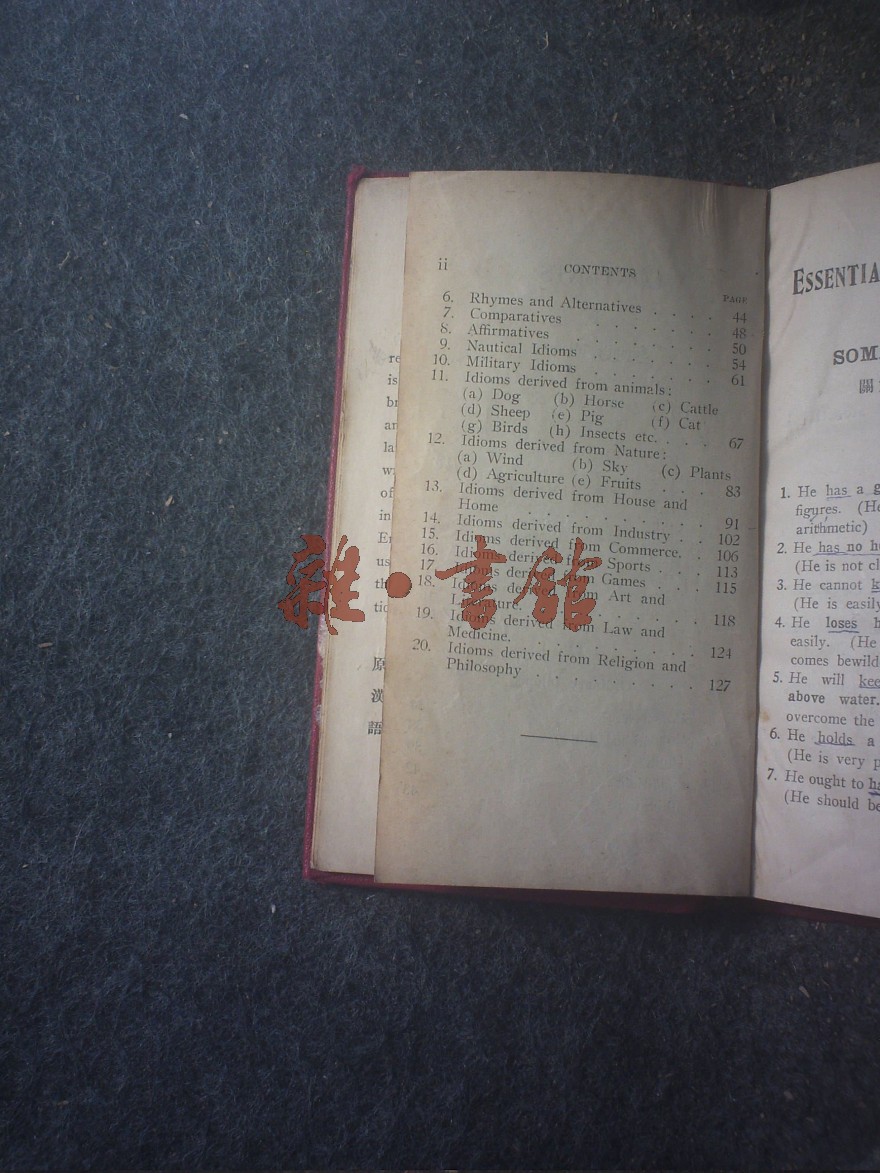 ii
CONTENTS
PAGE
6. Rhymes and Alternatives . . . . 44
7. Comparatives . . . . . . 48
8. Affirmatives . . . . . . . 50
9. Nautical Idioms . . . . . . 54
10. Military Idioms . . . . . . 61
11. Idioms derived from animals:
(a) Dog (b) Horse (c) Cattle
(d) Sheep (e) Pig (f) Cat
(g) Birds (h) Insects etc. . . . . 67
12. Idioms derived from Nature:
(a) Wind (b) Sky (c) Plants
(d) Agriculture (e) Fruits . . . . 83
13. Idioms derived from House and
Home . . . . . . . . . . 91
14. Idioms derived from Industry . . 102
15. Idioms derived from Commerce. . 106
16. Idioms derived from Sports . . . 113
17. Idioms derived from Games . . . 115
18. Idioms derived from Art and
Literature. . . . . . . . . 118
19. Idioms derived from Law and
Medicine. . . . . . . . . 124
20. Idioms derived from Religion and
Philosophy . . . . . . . . . 127
雜·書館
re
is
br
an
la
w
of
in
En
us
th
tio
原
漢
語
ESSENTIA
SOM
關
1. He has a g
figures. (He
arithmetic)
2. He has no he
(He is not cl
3. He cannot k
(He is easily
4. He loses h
easily. (He
comes bewild
5. He will kee
above water.
overcome the
6. He holds a
(He is very p
7. He ought to ha
(He should be